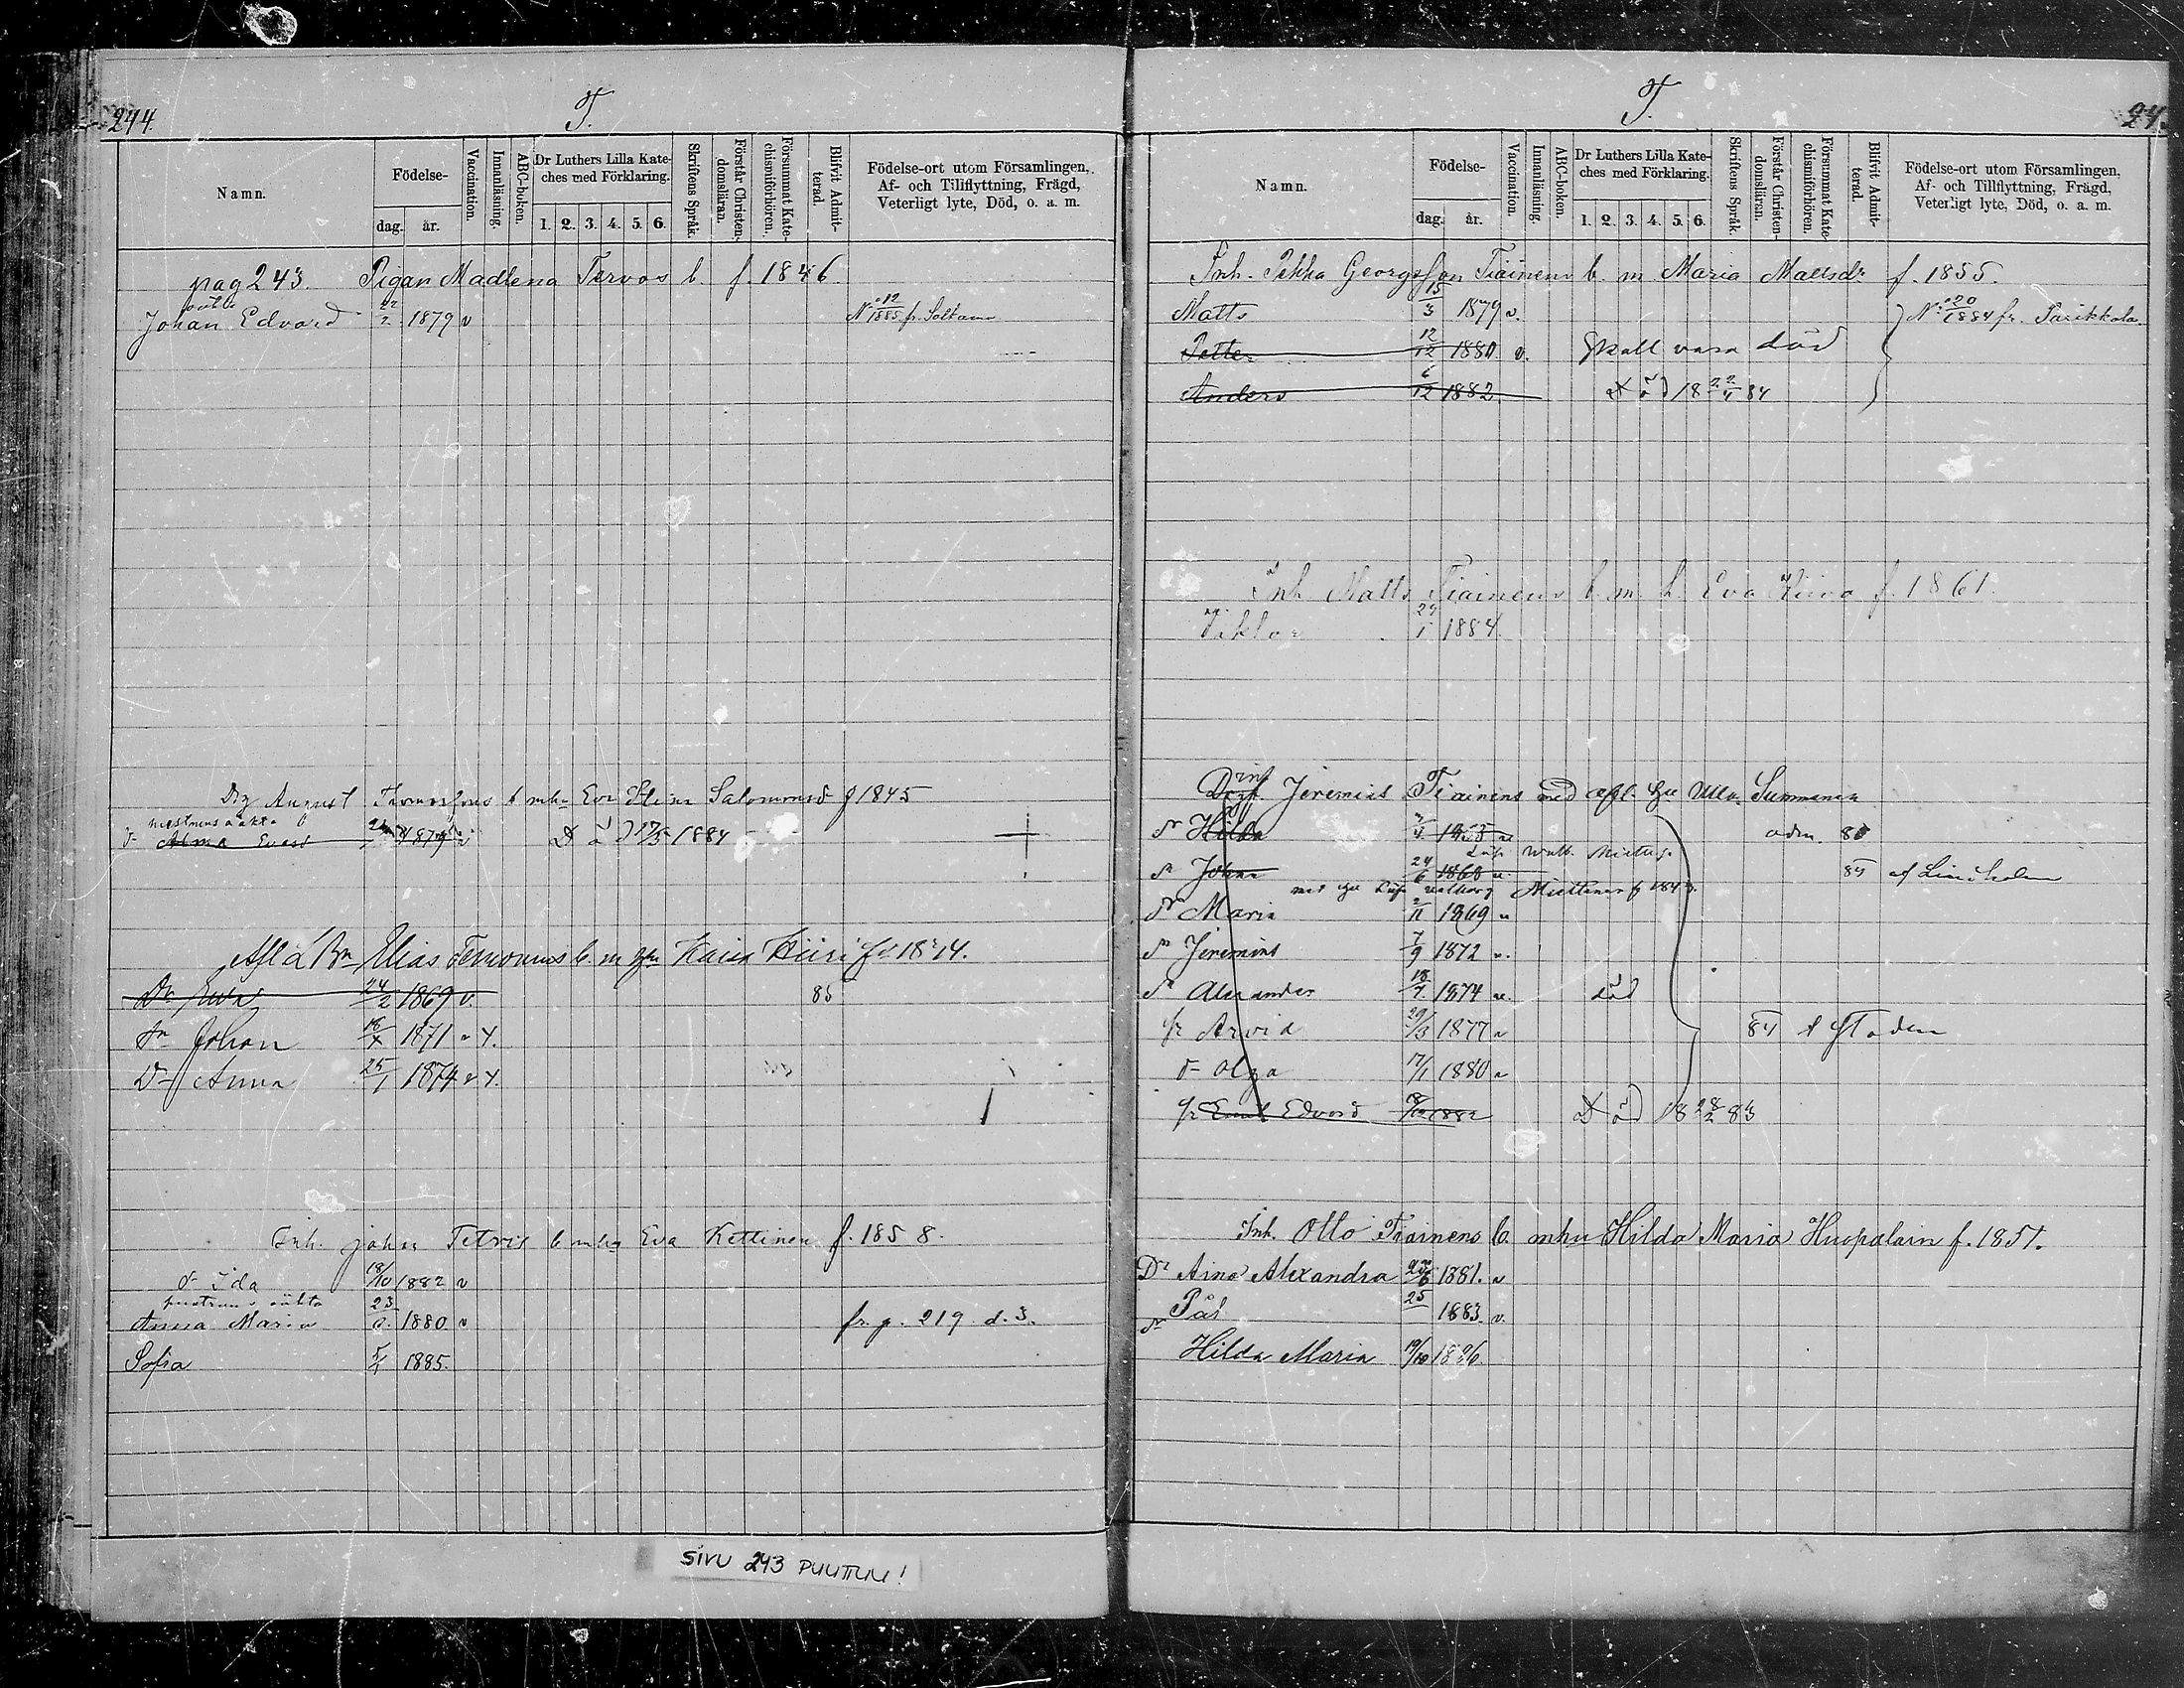 244.
T.
Namn.
Födelse-
dag.
år.
Vaccination.
Innanläsning.
ABC-boken.
Dr Luthers Lilla Kate-
ches med Förklaring.
1. 2. 3. 4. 5. 6.
Skriftens Språk.
Förstår Christen-
domsläran.
Försummat Kate-
chismiförhören.
Blifvit Admit-
terad.
Födelse-ort utom Församlingen,
Af- och Tillflyttning, Frägd,
Veterligt lyte, Död, o. a. m.
pag 243. Pigan Madlena Tervos b. f. 1846.
Johan Edvard 22/2 1879 v No 12/1885 fr.
August b mhu Eva Stina Salomonsd f 1845
dr Alma 1879 v Död 17/5 1884
Elias b. m Kaisa f. 1844.
Dr Eva 24/2 1869 v. 85
Sn Johan 18/X 1871 v 4.
Dr Anna 25/1 1874 v 4.
Inh. Johan Tetris b mhu Eva Kettinen f. 1858.
dr Ida 18/10 1882 v
Anna Maria 23 1880 v fr. p. 219. d. 3.
Sofia 5/4 1885.
SIVU 243 PUUTTUU!
T.
24
Namn.
Födelse-
dag.
år.
Vaccination.
Innanläsning.
ABC-boken.
Dr Luthers Lilla Kate-
ches med Förklaring.
1. 2. 3. 4. 5. 6.
Skriftens Språk.
Förstår Christen-
domsläran.
Försummat Kate-
chismiförhören.
Blifvit Admit-
terad.
Födelse-ort utom Församlingen,
Af- och Tillflyttning, Frägd,
Veterligt lyte, Död, o. a. m.
Inh. Pekka Georgsson Tiainens b. m. Maria Mattsdr f. 1855.
Matts 15/3 1879 v. No 20/1884 fr. Parikkala
Petter 12/12 1880 v. Skall vara död
Anders 6/12 1882 Död 18 22/4 84
Inh Matts Tiainens b. m. h. Eva f. 1861.
Viktor 29/1 1884
Jeremias Tiainens med afl. hu Ulla Summanen
Hilda adm. 80
Sn Johan 24/6 1868 v. 85 af Lindholm
Miettinen f 184
Dr Maria 2/11 1869 v
Sn Jeremias 7/9 1872 v.
Sn Alexander 18/7 1874 v. död
Sn Arvid 29/3 1877 v 84 t Staden
dr Olga 17/1 1880 v
Sn Emil Edvard 1882 Död 18 28/2 83
Inh. Otto Tiainens b. mhu Hilda Maria Huopalain f. 1851.
Dr Aina Alexandra 1881. v
Sn Pål 25 1883. v.
Hilda Maria 19/10 1886.